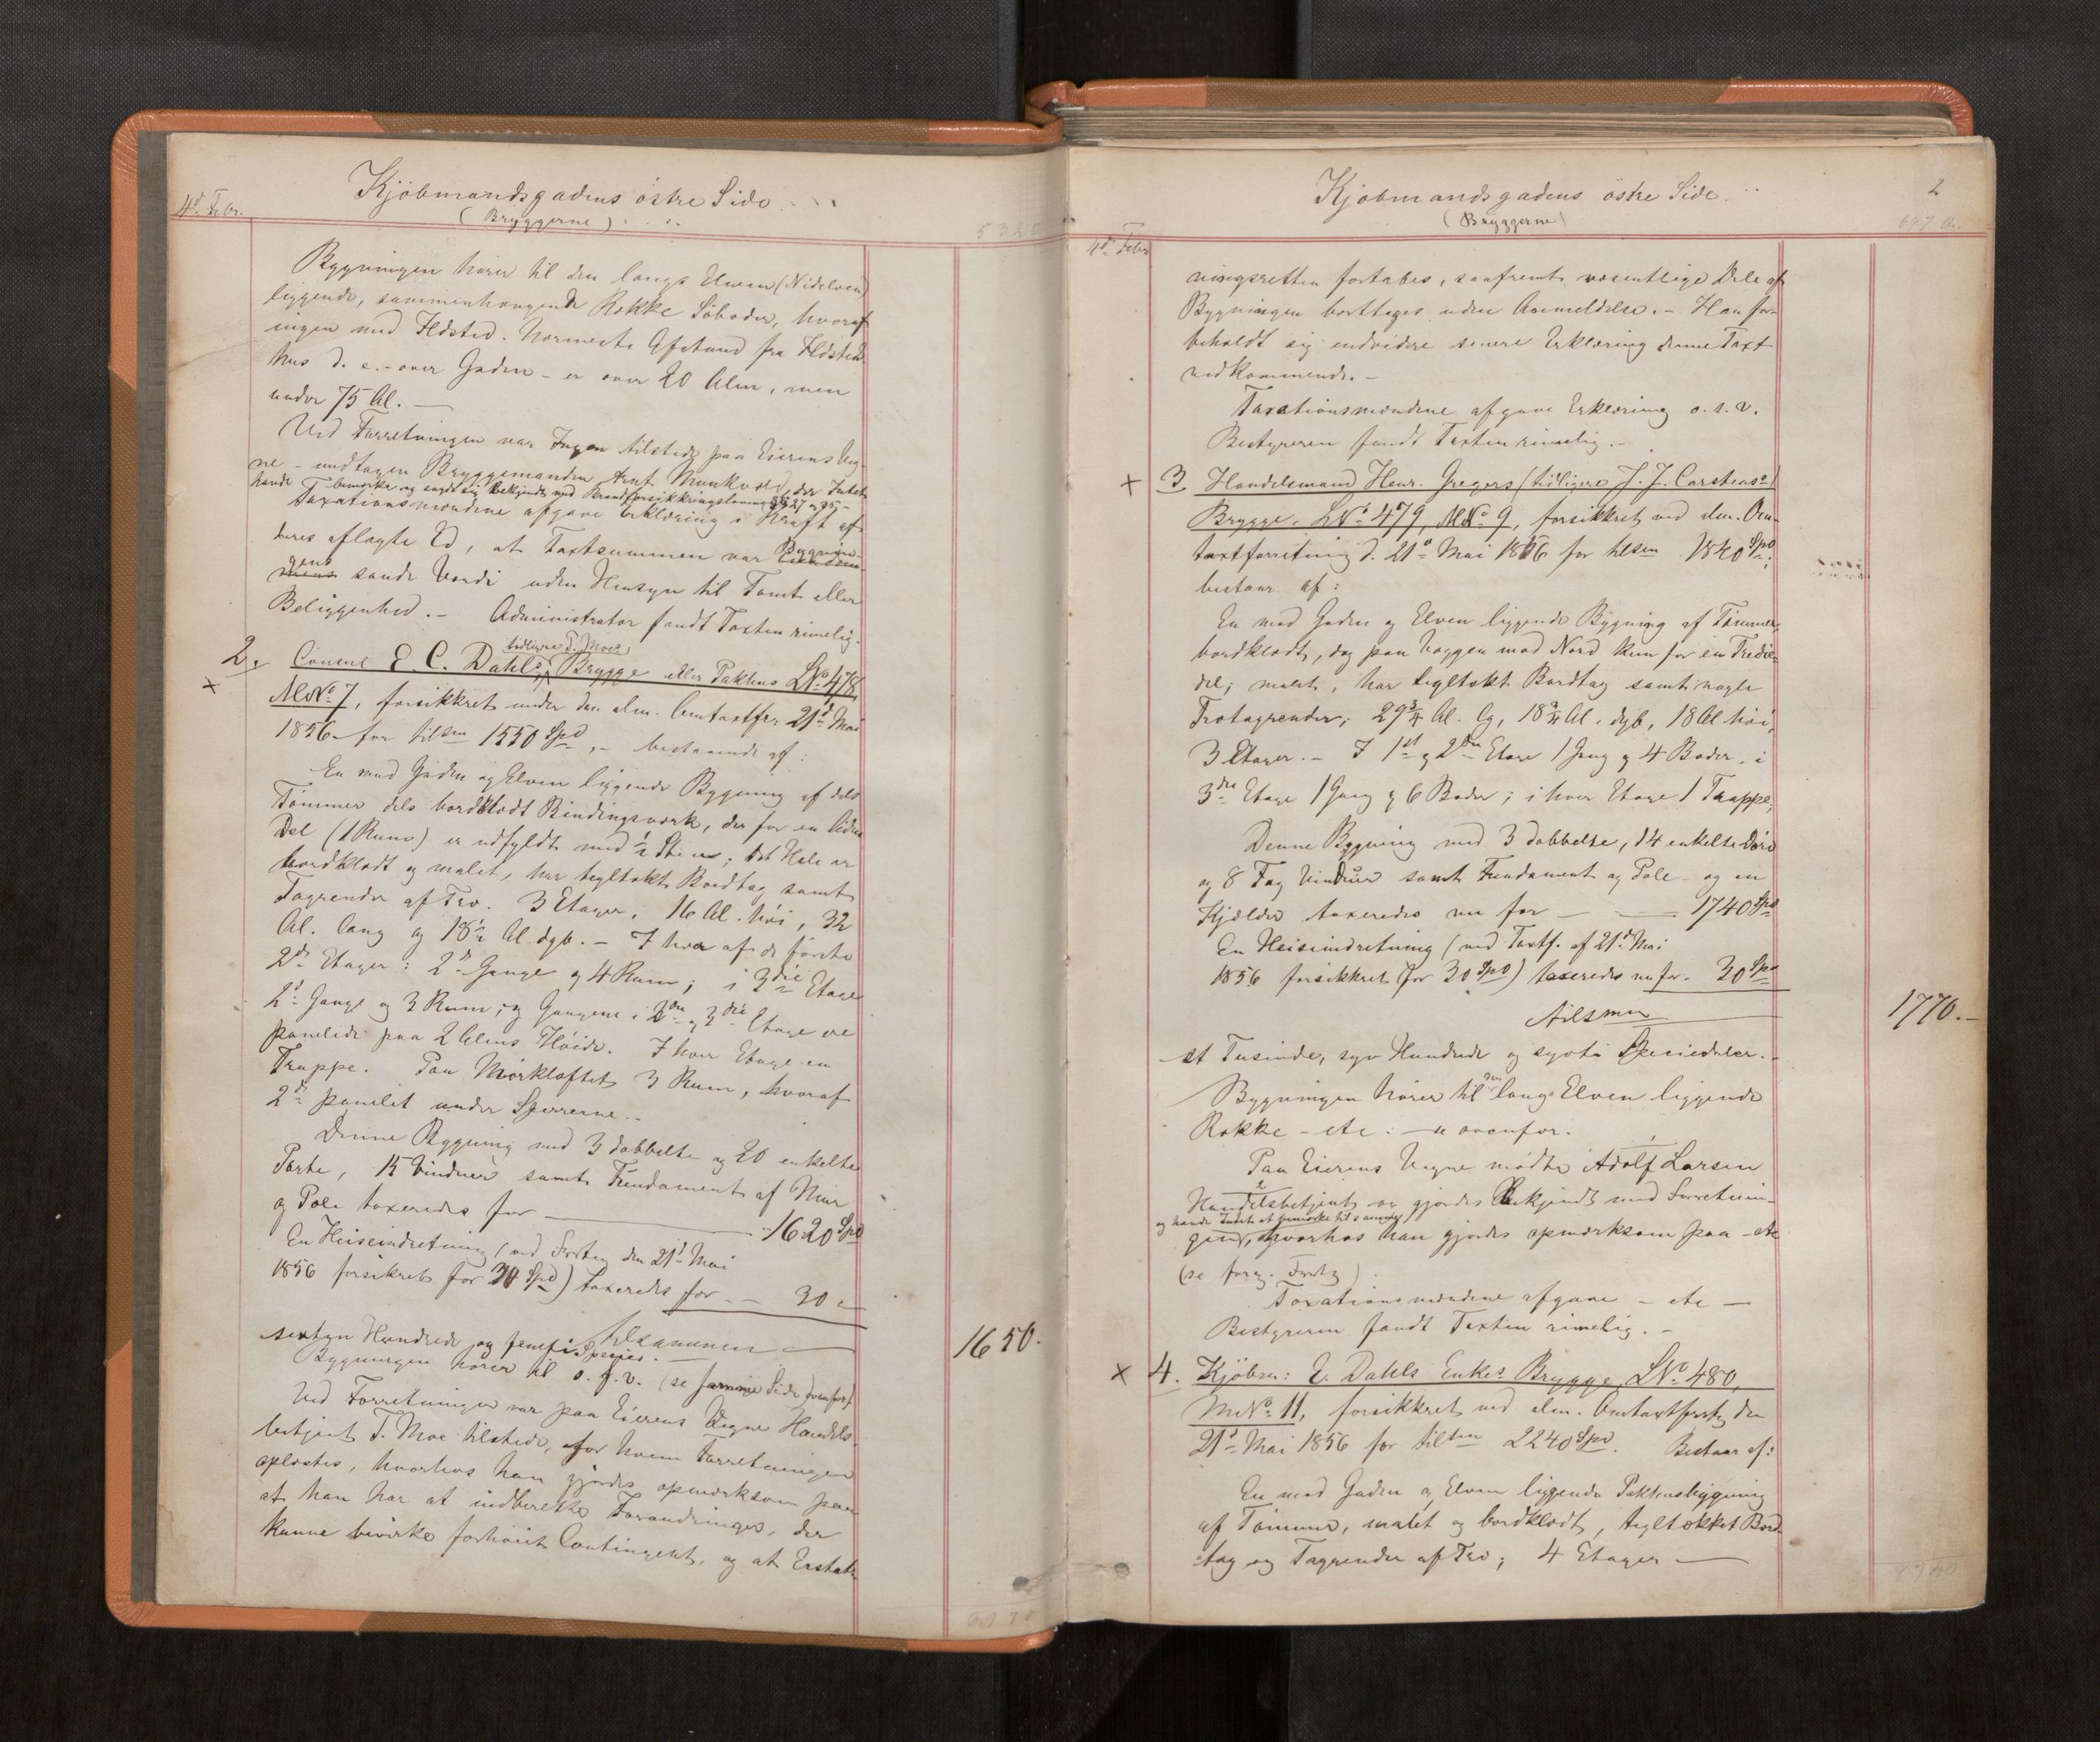 Kjöbmandsgadens östre Side
(Bryggerne)
4d. Febr.
5320
Bygningen hører til den langs Elven (Nidelven)
liggende, sammenhængende Række Söboder, hvoraf
ingen med Ildsted. Nærmeste Afstand fra Ildsteds-
hus d. e. - over Gaden - er over 20 Alen, men
under 75 Al. —
Ved Forretningen var Ingen tilstede paa Eierens Veg-
ne - undtagen Bryggemanden Arnt Munkvold, der Intet
havde bemærke og sagde sig bekjendt med Brandforsikkringslovens §§ 27 og 35 -
Taxationsmændene afgave Erklæring i Kraft af
deres aflagte Ed, at Taxtsummen var Bygnin-
gens sande Værdi uden Hensyn til Tomt eller
Beliggenhed. - Administrator fandt Taxten rimelig.
tidligere T. Moes
2. Consul E. C. Dahls, Brygge eller Pakhus LNo 478,
MNo 7, forsikkret under den alm. Omtaxtfor: 21d Mai
1856 for tilsm 1550 Spd, - bestaaende af:
En mod Gaden og Elven liggende Bygning af dels
Tömmer dels bordklædt Bindingsværk, der for en liden
Del (1 Rum) er udfyldt med ½ Sten; det Hele er
bordklædt og malet, har tegltækt Bordtag samt
Tagrender af Træ. 3 Etager, 16 Al. höi, 32
Al. lang og 18½ Al. dyb. - I hver af de første
2de Etager: 2de Gange og 4 Rum; i 3die Etage
2d Gange og 3 Rum; og Gangene i 2den og 3die Etage ere
panelede paa 2 Alens Höide. I hver Etage en
Trappe. Paa Mörkloftet 3 Rum, hvoraf
2de panelet under Sperrerne. -
Denne Bygning med 3 dobbelte og 20 enkelte
Porte, 15 Vinduer samt Fundament af Mur
og Pæle taxeredes for — 1620 Spd
En Heiseindretning (ved Forretn. den 21d Mai
1856 forsikret for 30 Spd) taxeredes for - - 30 "
Tilsammen
1650.
sextyn Hundrede og femti Species. —
Bygningen hører til o. s. v. (se samme Side ovenfor)
Ved Forretningen var paa Eierens Vegne Handels-
betjent T. Moe tilstede, for hvem Forretningen
oplæstes, hvorhos han gjordes opmærksom paa
at han har at indberette Forandringer, der
kunne bevirke forhöiet Contingent, og at Erstat-
Kjöbmandsgadens östre Side.
(Bryggerne)
2
4d. Febr.
ningsretten fortabes, saafremt væsentlige Dele af
Bygningen borttages uden Anmeldelse. - Han for-
beholdt sig endvidere senere Erklæring denne Taxt
vedkommende. -
Taxationsmændene afgave Erklæring o. s. v.
Bestyreren fandt Taxten rimelig. -
3. Handelsmand Henr. Gregers (tidligere J. J. Carstens)
Brygge, LNo 479, MNo 9, forsikkret ved alm. Om-
taxtforretning d. 21d Mai 1856 for tilsm 1840 Spd;
bestaar af:
En mod Gaden og Elven liggende Bygning af Tömmer,
bordklædt, dog paa Væggen mod Nord kun for en Tredie-
del; malet, har tegltækt Bordtag samt nogle
Trætagrender; 29¾ Al. lg, 18¾ Al. dyb, 18 Al höi,
3 Etager. - I 1st og 2den Etage 1 Gang og 4 Boder, i
3die Etage 1 Gang og 6 Boder; i hver Etage 1 Trappe,
Denne Bygning med 3 dobbelte, 14 enkelte Döre
og 8 Fag Vinduer samt Fundament og Pæle og en
Kjælder taxeredes nu for — 1740 Spd
En Heiseindretning (ved Taxtf. af 21d Mai
1856 forsikkret for 30 Spd) taxeredes nu for - 30 Spd
Tilsmn
1770. -
et Tusinde, syv Hundrede og syvti Speciedaler. -
Bygningen hører til den langs Elven liggende
Række - etc: - se ovenfor.
Paa Eierens Vegne mödte Adolf Larsen
Handelsbetjent og gjordes bekjendt med Forretnin-
og havde Intet at bemærke til samme
gen, hvorhos han gjordes opmærksom paa - etc
(se forrg. Forretn)
Taxationsmændene afgave - etc —
Bestyreren fandt Taxten rimelig. -
4. Kjöbm: E. Dahls Enkes Brygge, LNo 480,
MNo 11, forsikkret ved alm. Omtaxtforretn den
21d Mai 1856 for tilsm 2240 Spd. Bestaar af:
En mod Gaden og Elven liggende Pakhusbygning
af Tömmer, malet og bordklædt, tegltækket Bord-
tag og Tagrender af Træ; 4 Etager —